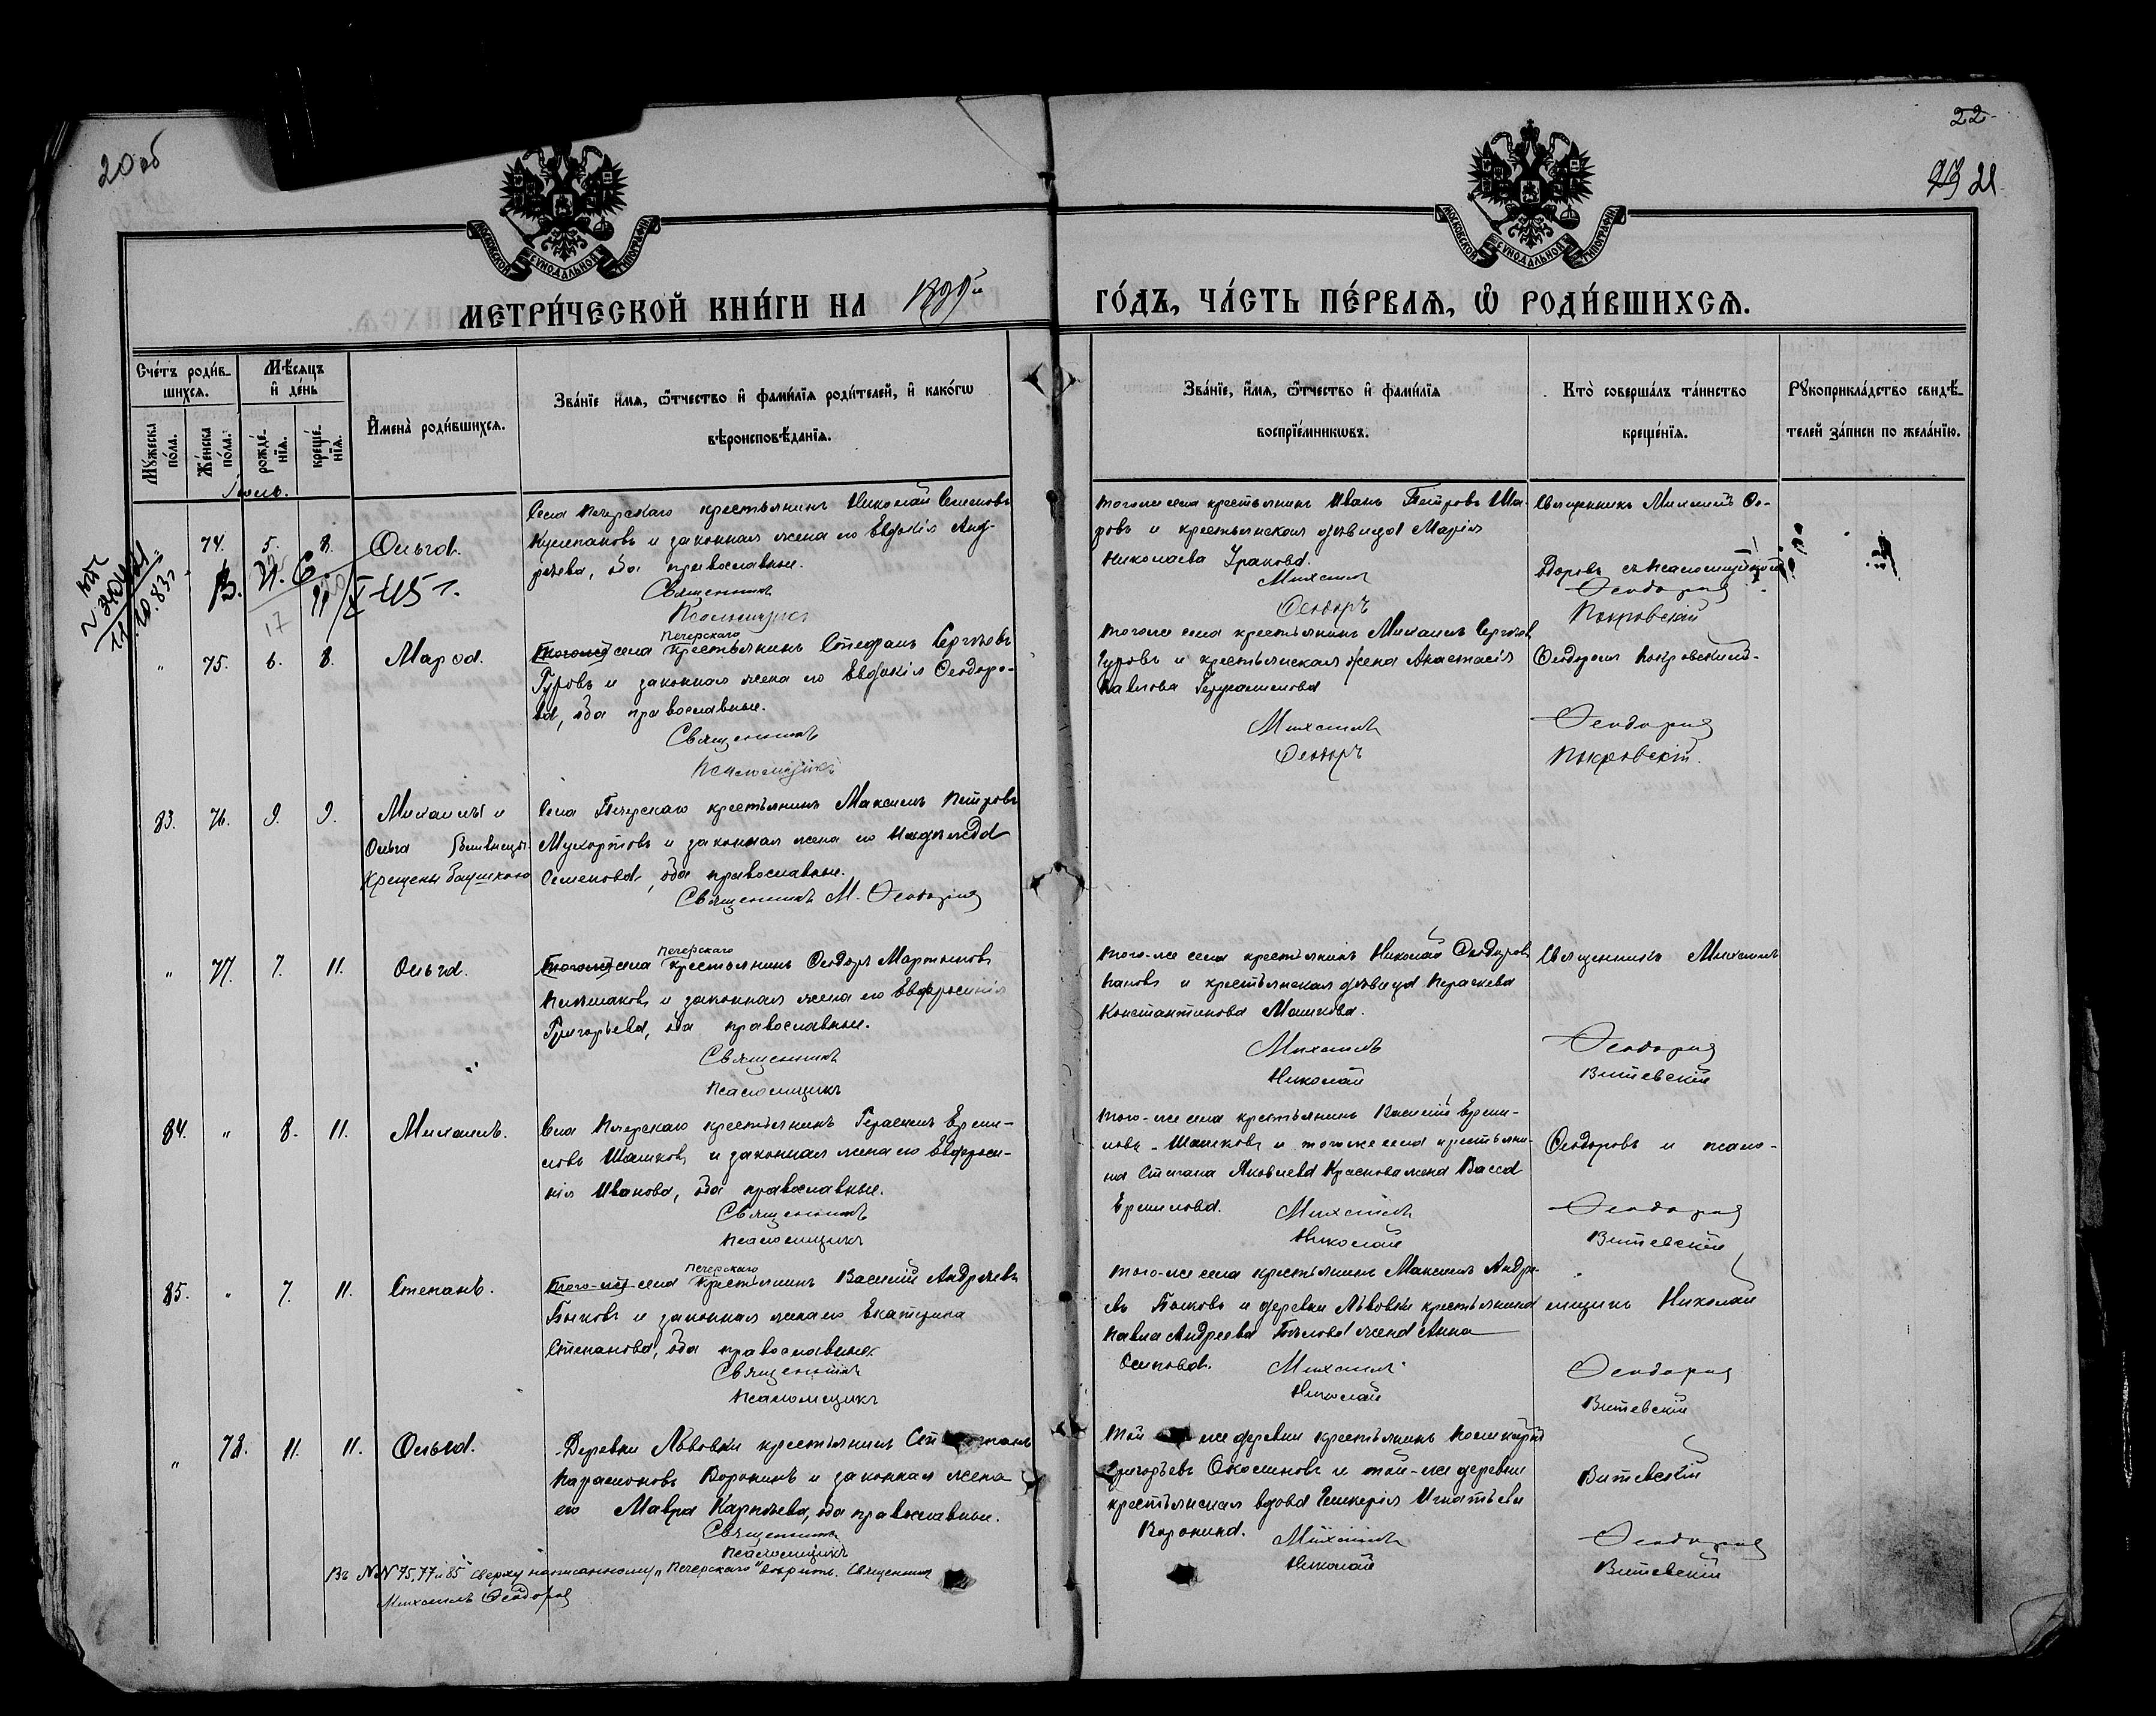 20 об
22
21
МОСКОВСКОЙ СѴНОДАЛЬНОЙ ТИПОГРАФІИ
МОСКОВСКОЙ СѴНОДАЛЬНОЙ ТИПОГРАФІИ
МЕТРИ́ЧЕСКОЙ КНИ́ГИ НА
ГО́ДЪ, ЧА́СТЬ ПЕ́РВАѦ, Ѡ҆ РОДИ́ВШИХСѦ.
Сче́тъ роди́в-
шихсѧ.
Мѣ́сѧцъ
и҆ де́нь
Мꙋ́жеска по́ла.
Же́нска по́ла.
рожде́-
нїѧ.
креще́-
нїѧ.
И҆мена̀ роди́вшихсѧ.
Зва́нїе и҆́мѧ, ѻ҆́тчество и҆ фами́лїѧ роди́телей, и҆ како́гѡ
вѣроисповѣ́данїѧ.
Зва́нїе, и҆́мѧ, ѻ҆́тчество и҆ фами́лїѧ
воспрїе́мникѡвъ.
Кто̀ соверша́лъ та́инство
креще́нїѧ.
Рꙋкоприкла́дство свидѣ́-
телей за́писи по жела́нїю.
Іюль.
74. 5. 8. Ольга.
Села Печерскаго крестьянинъ Николай Семеновъ
и законная жена его Евдокія Анд-
реева, оба православные.
Священникъ
Псаломщикъ
тогоже села крестьянинъ Иванъ Петровъ Ша-
ровъ и крестьянская дѣвица Марія
Николаева
Михаилъ
Ѳеодоръ
Священникъ Михаилъ Ѳе-
доровъ съ псаломщикомъ
Ѳеодоровъ
Покровскій
" 75. 6. 8. Мавра.
Печерскаго
Тогоже села крестьянинъ Стефанъ Сергѣевъ
Гуровъ и законная жена его Евдокія Ѳеодоро-
ва, оба православные.
Священникъ
Псаломщикъ
тогоже села крестьянинъ Михаилъ Сергѣевъ
Гуровъ и крестьянская жена Анастасія
Павлова
Михаилъ
Ѳеодоръ
Ѳеодоромъ Покровскимъ.
Ѳеодоровъ
Покровскій.
83. 76. 9. 9. Михаилъ и
Ольга Близнецы
Крещены баушкою
Села Печерскаго крестьянинъ Максимъ Петровъ
Мухортовъ и законная жена его Надежда
Семенова, оба православные.
Священникъ М. Ѳеодоровъ
" 77. 7. 11. Ольга.
Печерскаго
Тогоже села крестьянинъ Ѳеодоръ Мартыновъ
и законная жена его Евфросинія
Григорьева, оба православные.
Священникъ
Псаломщикъ
того-же села крестьянинъ Николай Ѳеодоровъ
Пановъ и крестьянская дѣвица Параскева
Константинова Машкова.
Михаилъ
Николай
Священникъ Михаилъ
Ѳеодоровъ
Витевскій
84. " 8. 11. Михаилъ.
Села Печерскаго крестьянинъ Герасимъ Ерми-
ловъ Шашковъ и законная жена его Евфроси-
нія Иванова, оба православные.
Священникъ
Псаломщикъ
того-же села крестьянинъ Василій Ерми-
ловъ Шашковъ и тогоже села крестьяни-
на Степана Яковлева Краснова жена Васса
Ермилова.
Михаилъ
Николай
Ѳеодоровъ и псало-
Ѳеодоровъ
Витевскій
85. " 7. 11. Степанъ.
Печерскаго
Того-же села крестьянинъ Василій Андреевъ
Быковъ и законная жена его Екатерина
Степанова, оба православные.
Священникъ
Псаломщикъ
того-же села крестьянинъ Максимъ Андре-
евъ Быковъ и деревни Львовки крестьянина
Павла Андреева Бѣлова жена Анна
Осипова.
Михаилъ
Николай
мщикъ Николай
Ѳеодоровъ
Витевскій
" 78. 11. 11. Ольга.
Деревни Львовки крестьянинъ
Парамоновъ Воронинъ и законная жена
его Мавра Карпеева, оба православные.
Священникъ
Псаломщикъ
Той же деревни крестьянинъ Поликарпъ
Григорьевъ и той-же деревни
крестьянская вдова Гликерія Игнатьева
Воронина.
Михаилъ
Николай
Витевскій
Ѳеодоровъ
Витевскій
Въ №№ 75, 77 и 85 сверху написанному „Печерскаго" вѣрить. Священникъ
Михаилъ Ѳеодоровъ